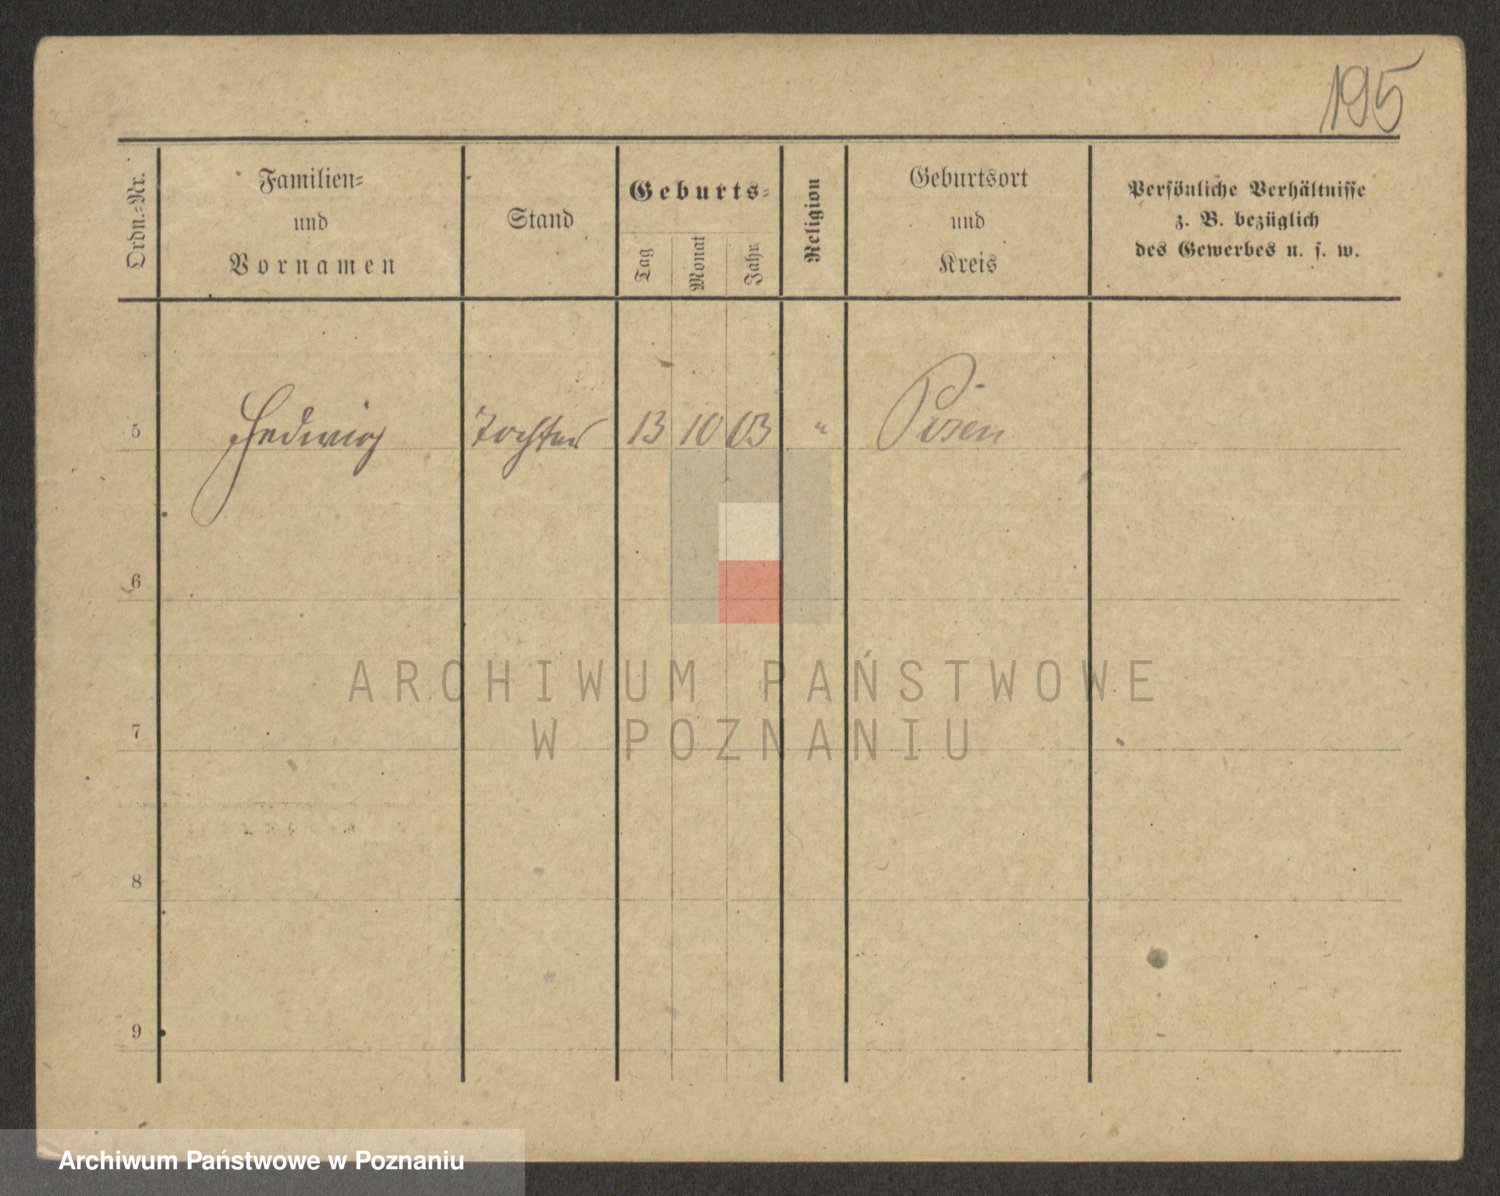 195
Ordn.-Nr.
Familien-
und
Vornamen
Stand
Geburts-
Tag
Monat
Jahr
Religion
Geburtsort
und
Kreis
Persönliche Verhältnisse
z. B. bezüglich
des Gewerbes u. s. w.
5 Hedwig Tochter 13 10 03 " Posen
6
7
8
9
ARCHIWUM PAŃSTWOWE
W POZNANIU
Archiwum Państwowe w Poznaniu